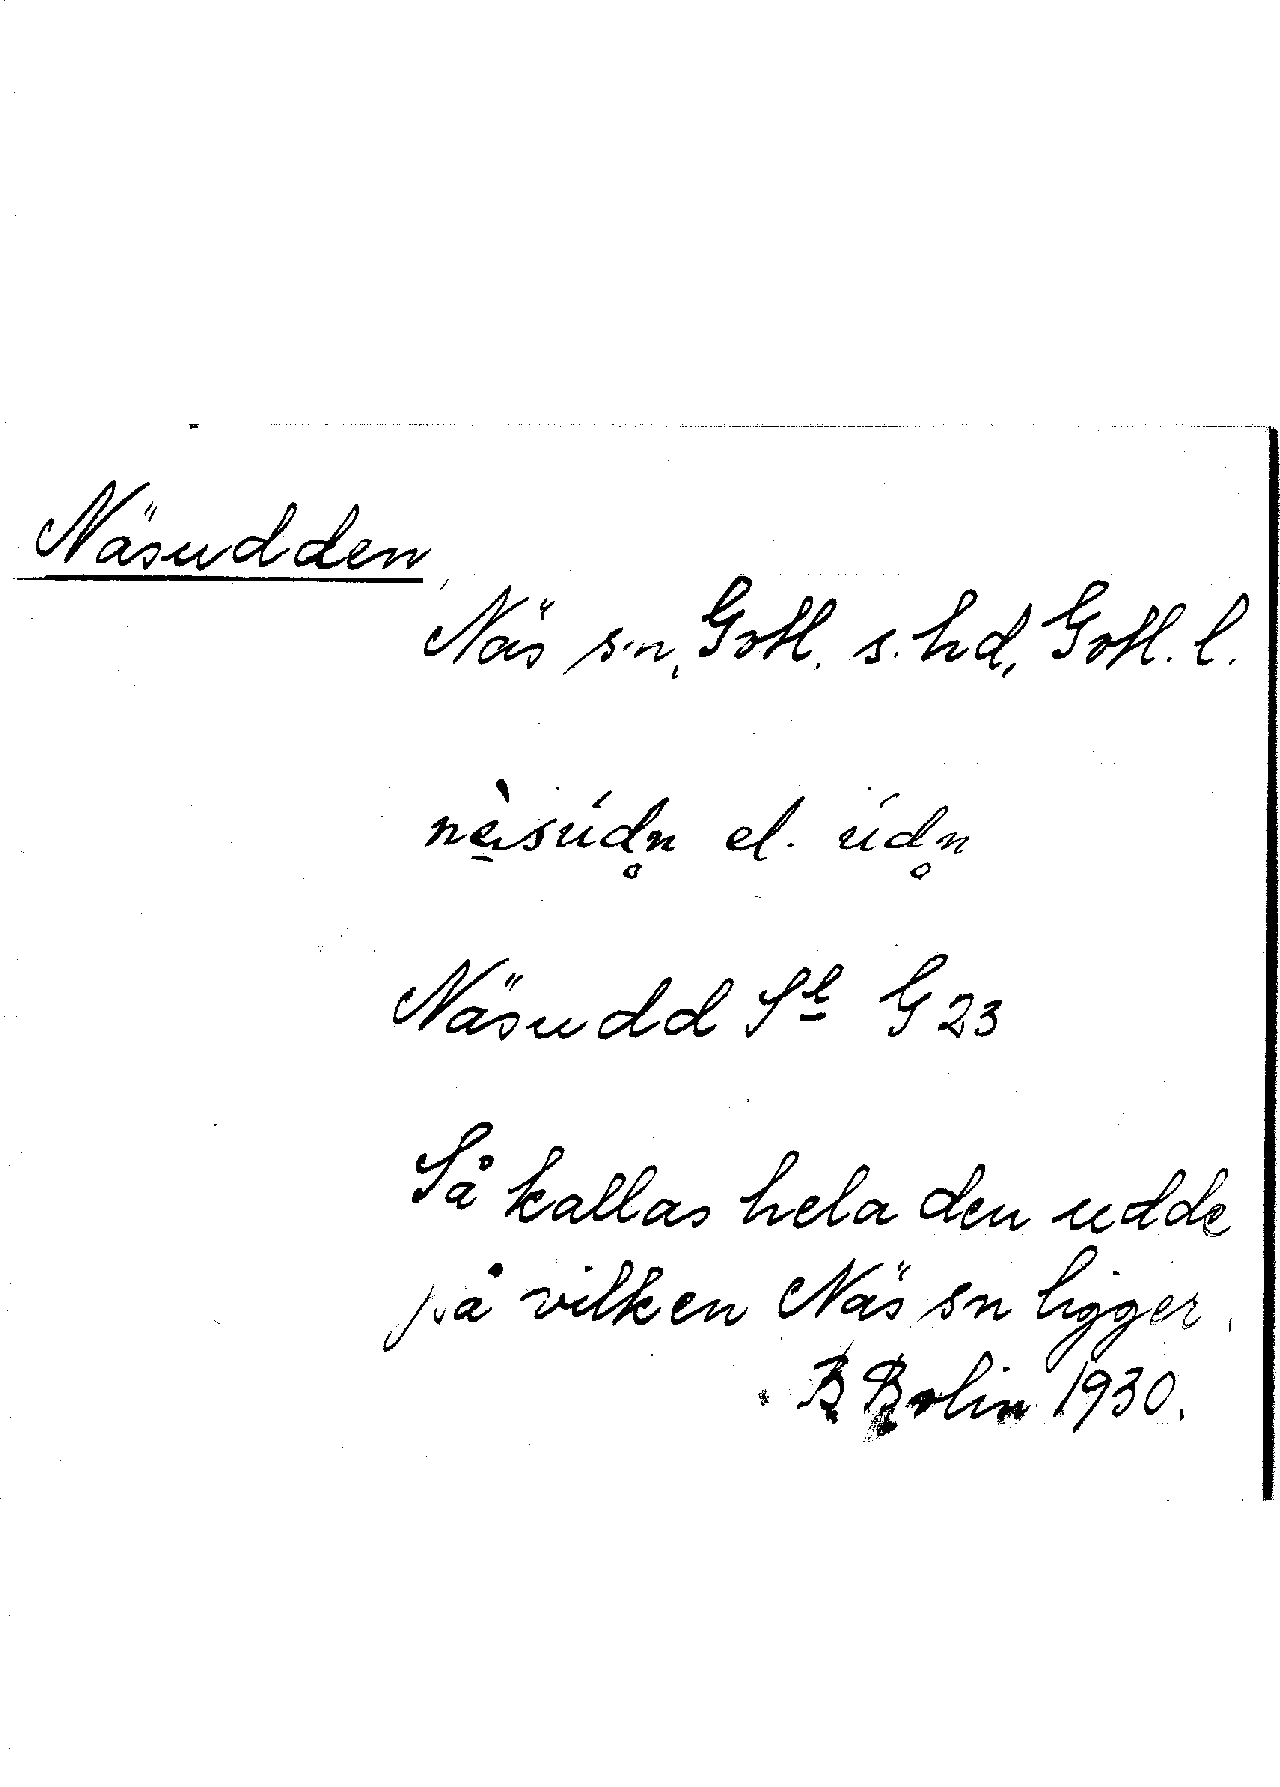 Näsudden
Näs sn, Gotl. s. hd, Gotl. l.
nèsúdn̥ el. údn̥
Näsudd G 23
Så kallas hela den udde
på vilken Näs sn ligger.
B Bolin 1930.